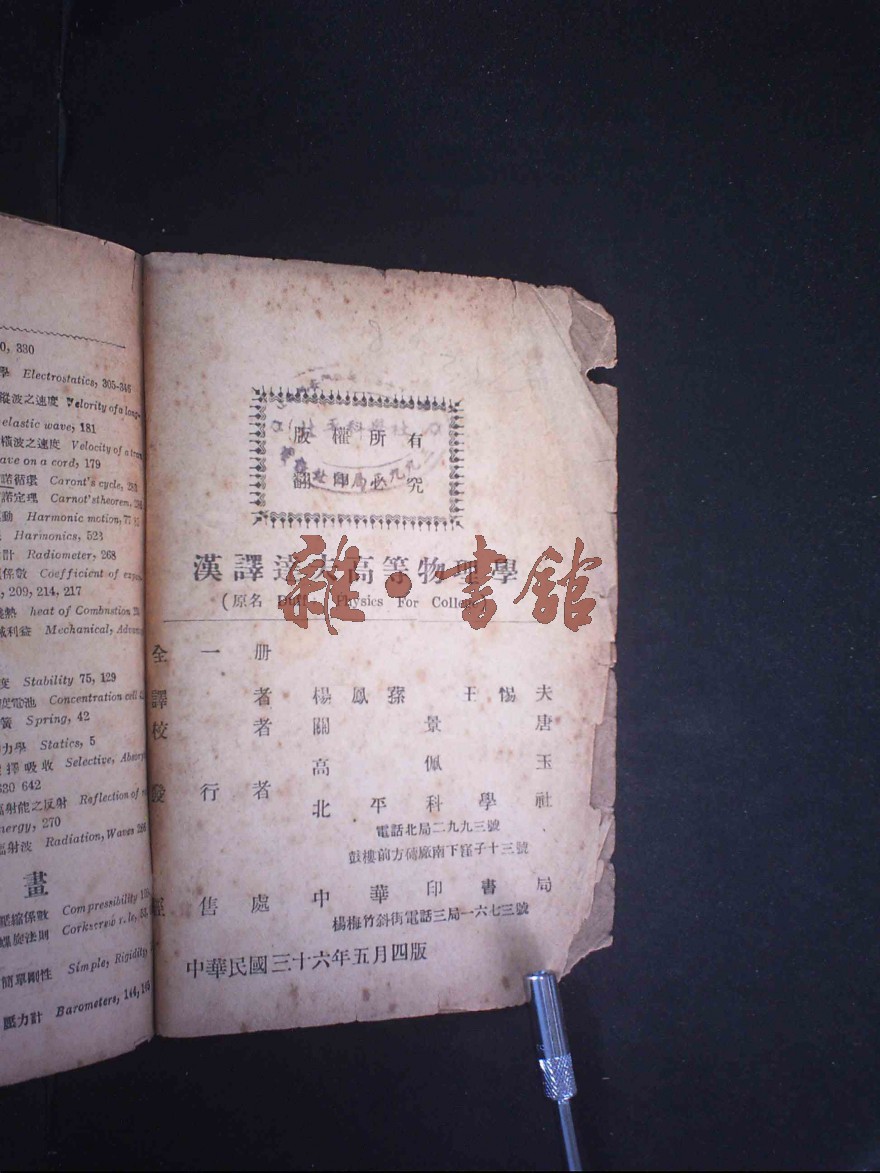 0, 330
學 Electrostatics, 305-346
縱波之速度 Velority of a long-
elastic wave, 181
橫波之速度 Velocity of a tran
ave on a cord, 179
諾循環 Caront's cycle,
諾定理 Carnot's theorem,
動 Harmonic motion, 77
Harmonics, 523
計 Radiometer, 268
係數 Coefficient of expan
, 209, 214, 217
熱 heat of Combnstion
械利益 Mechanical, Advan
度 Stability 75, 129
度電池 Concentration cell
簧 Spring, 42
力學 Statics, 5
擇吸收 Selective, Absorp
630 642
輻射能之反射 Reflection of
nergy, 270
輻射波 Radiation, Waves
畫
壓縮係數 Compressibility
螺旋法則 Corkscrew
簡單剛性 Simple, Rigidity
壓力計 Barometers, 144, 145
版權所有
翻印必究
北平科學社
漢譯達夫高等物理學
(原名 Duff: Physics For College)
雜·書館
全一册
譯者 楊鳳蓀 王惕夫
校者 關景唐
高佩玉
發行者 北平科學社
電話北局二九九三號
鼓樓前方磚廠南下窪子十三號
經售處 中華印書局
楊梅竹斜街電話三局一六七三號
中華民國三十六年五月四版